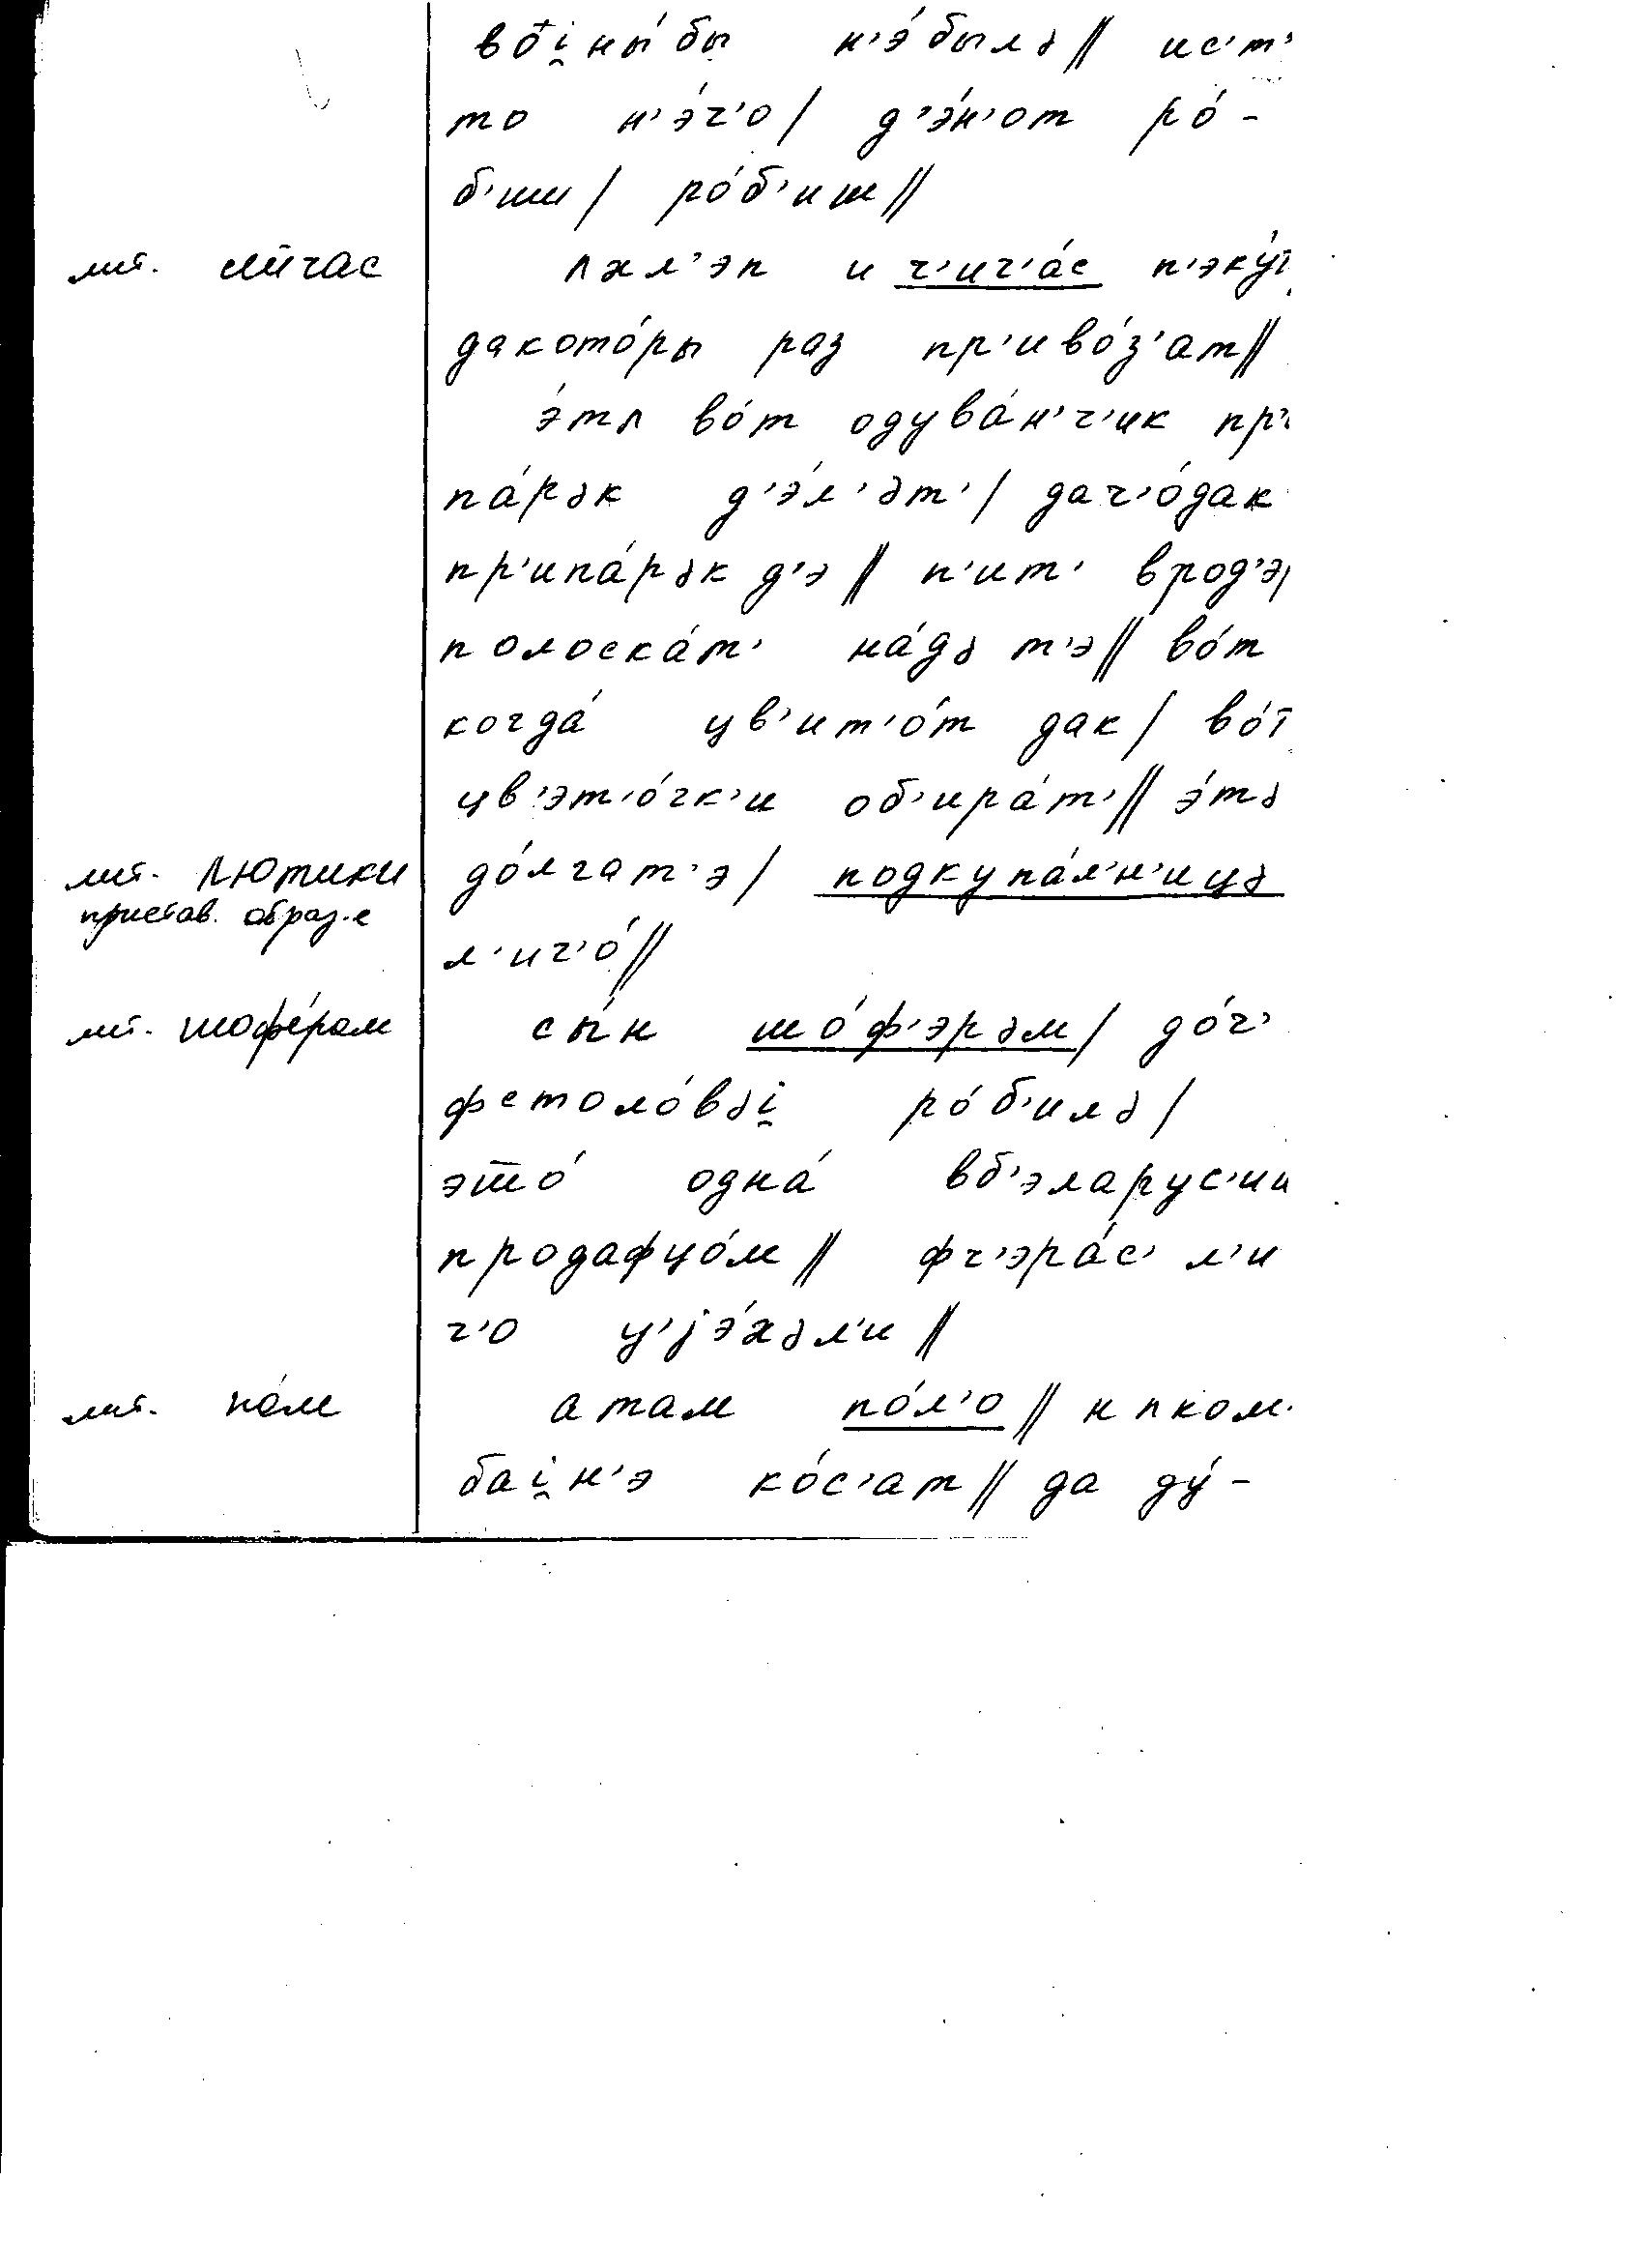 во̄і̯ны́бы н'э́былъ// ис'т'
то н'э́ч'о/ д'э́н'от ро́-
б'иш/ ро́б'иш//
лит. сейчас ʌхл'эп и ч'ич'а́с п'эку́т
дакото́ры раз пр'иво́з'ат//
э́тʌ во́т одува́н'ч'ик пр'и
па́ръ̀к д'э́л'ът'/ дач'о́дак
пр'ипа́рък д'э // п'ит' врод'э/
полоска́т' на́дъ т'э// во́т
когда́ цв'ит'о́т дак/ во́т
цв'эт'о́чк'и об'ира́т'// э́тъ
лит. лютики до́лгат'э/ подкупа́л'н'ицъ
пристав. образ-е л'ич'о́//
лит. шофе́ром сы́н шо́ф'эръм/ до́ч'
фстоло́въі̯ ро́б'илъ/
эт̄о́ одна́ вб'эларус'ии
продафцо́м// фч'эра́с' л'и
ч'о у'jэ́хъл'и//
лит. по́ле а там по́л'о// нʌком-
баі̯н'э ко́с'ат// да ду́-